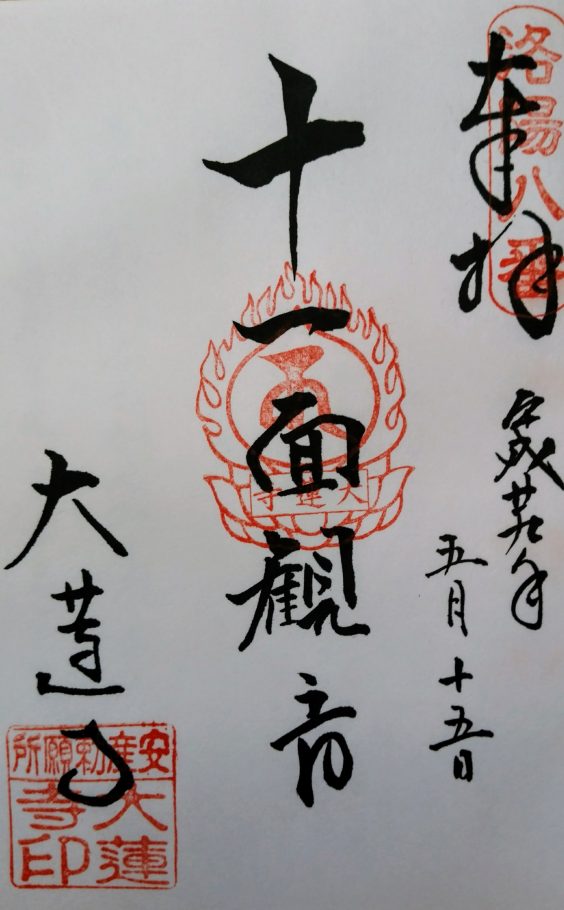 洛陽八番
奉拝
平成廿九年
五月十五日
十一面観音
大蓮寺
大蓮寺
安産勅願所
大蓮
寺印